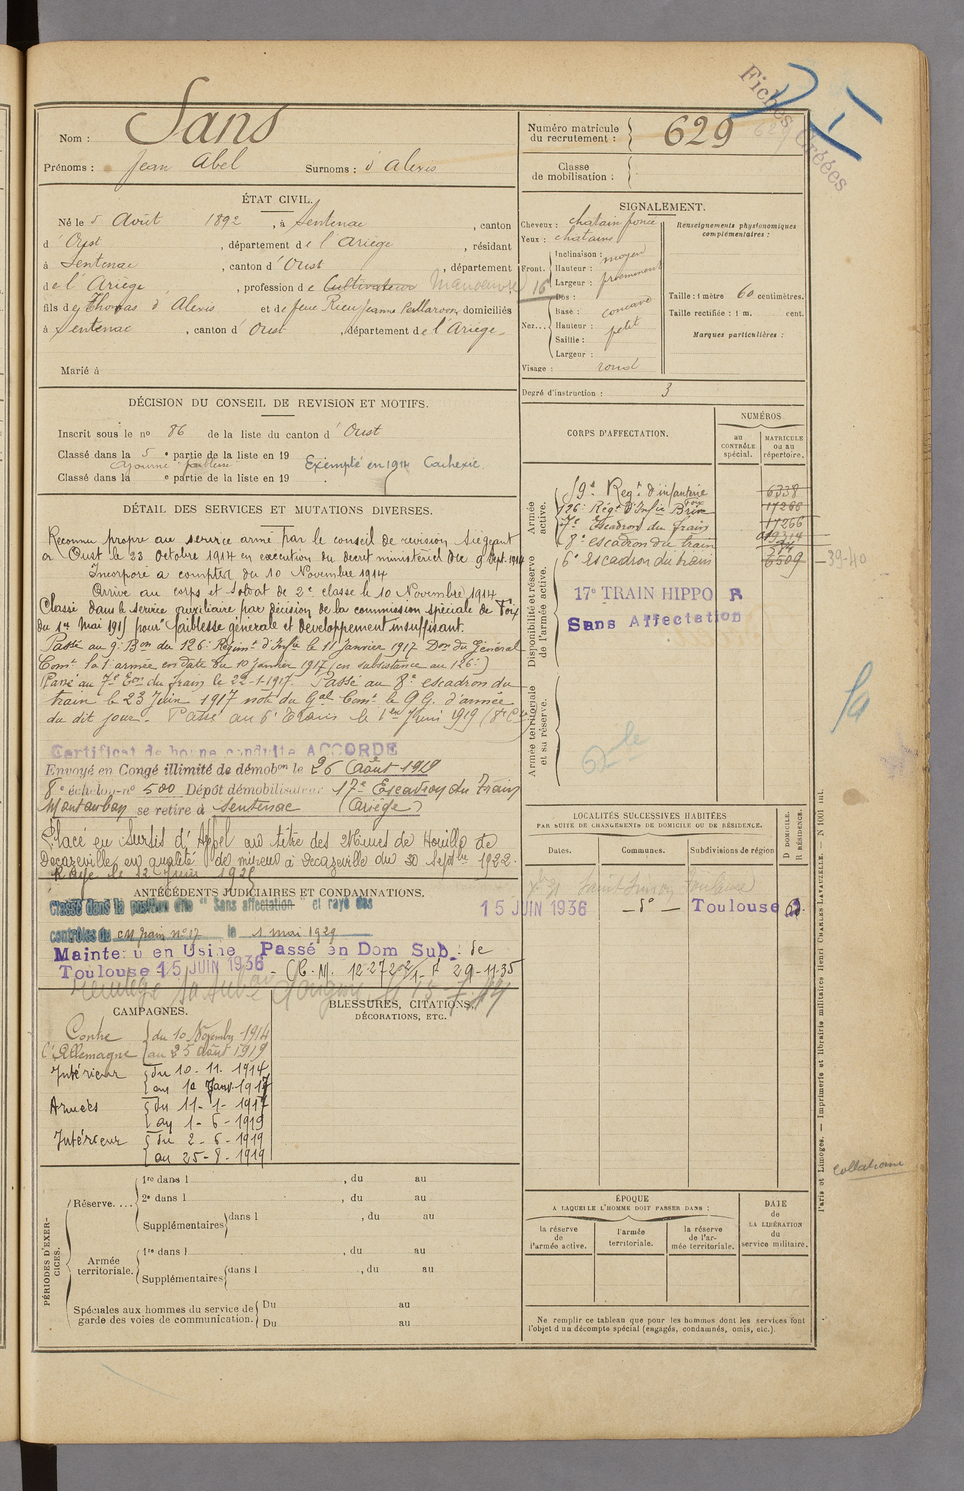 Fiches Créées
Nom : Sans
Prénoms : Jean Abel Surnoms : d'Alexis
Numéro matricule du recrutement : 629
Classe de mobilisation :
ÉTAT CIVIL.
Né le 5 Août 1892, à Sentenac, canton
d'Oust, département de l'Ariège, résidant
à Sentenac, canton d'Oust, département
de l'Ariège, profession de Cultivateur Manoeuvre 16
fils de Thomas d'Alexis et de feue Rieu Jeanne domiciliés
à Sentenac, canton d'Oust, département de l'Ariège
Marié à
SIGNALEMENT.
Cheveux : chatain foncé
Yeux : chatains
Front. Inclinaison : moyen
Hauteur :
Largeur : proéminent
Nez... Dos :
Base : concave
Hauteur : petit
Saillie :
Largeur :
Visage : rond
Renseignements physionomiques complémentaires :
Taille : 1 mètre 60 centimètres.
Taille rectifiée : 1 m. cent.
Marques particulières :
Degré d'instruction : 3
DÉCISION DU CONSEIL DE REVISION ET MOTIFS.
Inscrit sous le no 86 de la liste du canton d'Oust
Classé dans la 5e partie de la liste en 19
Ajourné faiblesse Exempté en 1914 Cachexie
Classé dans la e partie de la liste en 19
DÉTAIL DES SERVICES ET MUTATIONS DIVERSES.
Reconnu propre au service armé par le conseil de révision siégeant
à Oust le 23 Octobre 1914 en exécution du décret ministériel du 9 Sept. 1914
Incorporé à compter du 10 Novembre 1914
Arrivé au corps et soldat de 2e classe le 10 Novembre 1914
Classé dans le service auxiliaire par décision de la commission spéciale de Foix
du 1er Mai 1915 pour faiblesse générale et développement insuffisant.
Passé au 9e Bon du 126e Régimt d'Infie le 11 Janvier 1917 Don du Général
Comt la 1 armée en date du 10 Janvier 1917 (en subsistance au 126e)
Passé au 7e Eon du train le 22-1-1917. Passé au 8e escadron du
train le 23 Juin 1917 note du Gal Comt le G.G. d'armée
du dit jour. Passé au 6e Train le 1er Juin 1919
Certificat de bonne conduite ACCORDÉ
Envoyé en Congé illimité de démobon le 26 Août 1919
8e échelon no 500 Dépôt démobilisateur 17e Escadron du Train
Montauban se retire à Sentenac (Ariège)
Placé en Sursis d'Appel au titre des Mines de Houille de
Decazeville en qualité de mineur à Decazeville du 30 Septbre 1922.
Rayé le 12 Juin 1928
ANTÉCÉDENTS JUDICIAIRES ET CONDAMNATIONS.
Classé dans la position dite "Sans affectation" et rayé des
contrôles du CM train no 17 le 1 mai 1929
Maintenu en Usine Passé en Dom Sub. de
Toulouse 15 JUIN 1936 - C.C.M. 12272 29-11-35
CORPS D'AFFECTATION.
NUMÉROS
au CONTRÔLE spécial.
MATRICULE ou au répertoire.
Armée active.
59e Regt d'infanterie 6338
126e Régt d'Infie Brive 17266
7e Escadron du train 17266
8e escadron du train 9314
6e escadron du train 6509 39-40
Disponibilité et réserve de l'armée active.
17e TRAIN HIPPO R
Sans Affectation
Armée territoriale et sa réserve.
Sa
LOCALITÉS SUCCESSIVES HABITÉES
PAR SUITE DE CHANGEMENTS DE DOMICILE OU DE RÉSIDENCE.
Dates. Communes. Subdivisions de région D DOMICILE. R RÉSIDENCE.
Toulouse
15 JUIN 1936 — do — Toulouse D.
CAMPAGNES.
Contre l'Allemagne du 10 Novembre 1914
au 25 Août 1919
Intérieur du 10-11-1914
au 10 Janv. 1917
Armées du 11-1-1917
au 1-6-1919
Intérieur du 2-6-1919
au 25-8-1919
BLESSURES, CITATIONS,
DÉCORATIONS, ETC.
PÉRIODES D'EXERCICES.
Réserve.... 1re dans l , du au
2e dans l , du au
Supplémentaires dans l , du au
Armée territoriale. 1re dans l , du au
Supplémentaires dans l , du au
Spéciales aux hommes du service de garde des voies de communication. Du au
Du au
ÉPOQUE
A LAQUELLE L'HOMME DOIT PASSER DANS :
la réserve de l'armée active.
l'armée territoriale.
la réserve de l'armée territoriale.
DATE de LA LIBÉRATION du service militaire.
Ne remplir ce tableau que pour les hommes dont les services font
l'objet d'un décompte spécial (engagés, condamnés, omis, etc.).
Paris et Limoges. — Imprimerie et librairie militaires Henri CHARLES-LAVAUZELLE. — N 1001 int.
Collationné